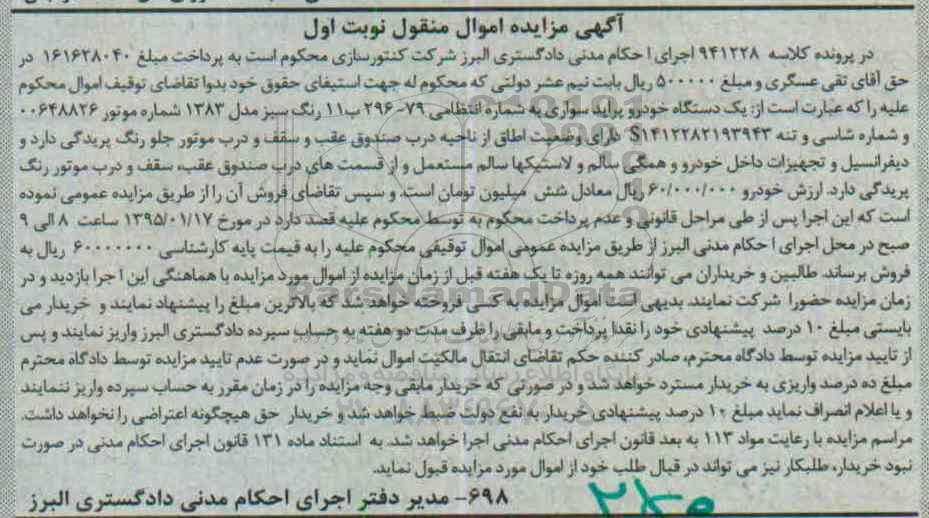 آگهی مزایده اموال منقول نوبت اول
در پرونده کلاسه ۹۴۱۲۲۸ اجرای احکام مدنی دادگستری البرز شرکت کنتورسازی محکوم است به پرداخت مبلغ ۱۶۱۶۲۸۰۴۰ در
حق آقای تقی عسگری و مبلغ ۵۰۰۰۰۰ ریال بابت نیم عشر دولتی که محکوم له جهت استیفای حقوق خود بدوا تقاضای توقیف اموال محکوم
علیه را که عبارت است از: یک دستگاه خودرو پراید سواری به شماره انتظامی ۷۹-۲۹۶ ب۱۱ رنگ سبز مدل ۱۳۸۳ شماره موتور ۰۰۶۴۸۸۲۶
و شماره شاسی و تنه S۱۴۱۲۲۸۲۱۹۳۹۴۳ دارای وضعیت اطاق از ناحیه درب صندوق عقب و سقف و درب موتور جلو رنگ پریدگی دارد و
دیفرانسیل و تجهیزات داخل خودرو و همگی سالم و لاستیکها سالم مستعمل و از قسمت های درب صندوق عقب، سقف و درب موتور رنگ
پریدگی دارد. ارزش خودرو ۶۰/۰۰۰/۰۰۰ ریال معادل شش میلیون تومان است. و سپس تقاضای فروش آن را از طریق مزایده عمومی نموده
است که این اجرا پس از طی مراحل قانونی و عدم پرداخت محکوم به توسط محکوم علیه قصد دارد در مورخ ۱۳۹۵/۰۱/۱۷ ساعت ۸ الی ۹
صبح در محل اجرای احکام مدنی البرز از طریق مزایده عمومی اموال توقیفی محکوم علیه را به قیمت پایه کارشناسی ۶۰۰۰۰۰۰۰ ریال به
فروش برساند. طالبین و خریداران می توانند همه روزه تا یک هفته قبل از زمان مزایده از اموال مورد مزایده با هماهنگی این اجرا بازدید و در
زمان مزایده حضورا شرکت نمایند. بدیهی است اموال مزایده به کسی فروخته خواهد شد که بالاترین مبلغ را پیشنهاد نمایند و خریدار می
بایستی مبلغ ۱۰ درصد پیشنهادی خود را نقدا پرداخت و مابقی را ظرف مدت دو هفته به حساب سپرده دادگستری البرز واریز نمایند و پس
از تایید مزایده توسط دادگاه محترم، صادر کننده حکم تقاضای انتقال مالکیت اموال نماید و در صورت عدم تایید مزایده توسط دادگاه محترم
مبلغ ده درصد واریزی به خریدار مسترد خواهد شد و در صورتی که خریدار مابقی وجه مزایده را در زمان مقرر به حساب سپرده واریز ننمایند
و یا اعلام انصراف نماید مبلغ ۱۰ درصد پیشنهادی خریدار به نفع دولت ضبط خواهد شد و خریدار حق هیچگونه اعتراضی را نخواهد داشت.
مراسم مزایده با رعایت مواد ۱۱۳ به بعد قانون اجرای احکام مدنی اجرا خواهد شد. به استناد ماده ۱۳۱ قانون اجرای احکام مدنی در صورت
نبود خریدار، طلبکار نیز می تواند در قبال طلب خود از اموال مورد مزایده قبول نماید.
۶۹۸- مدیر دفتر اجرای احکام مدنی دادگستری البرز
ParsNamadData